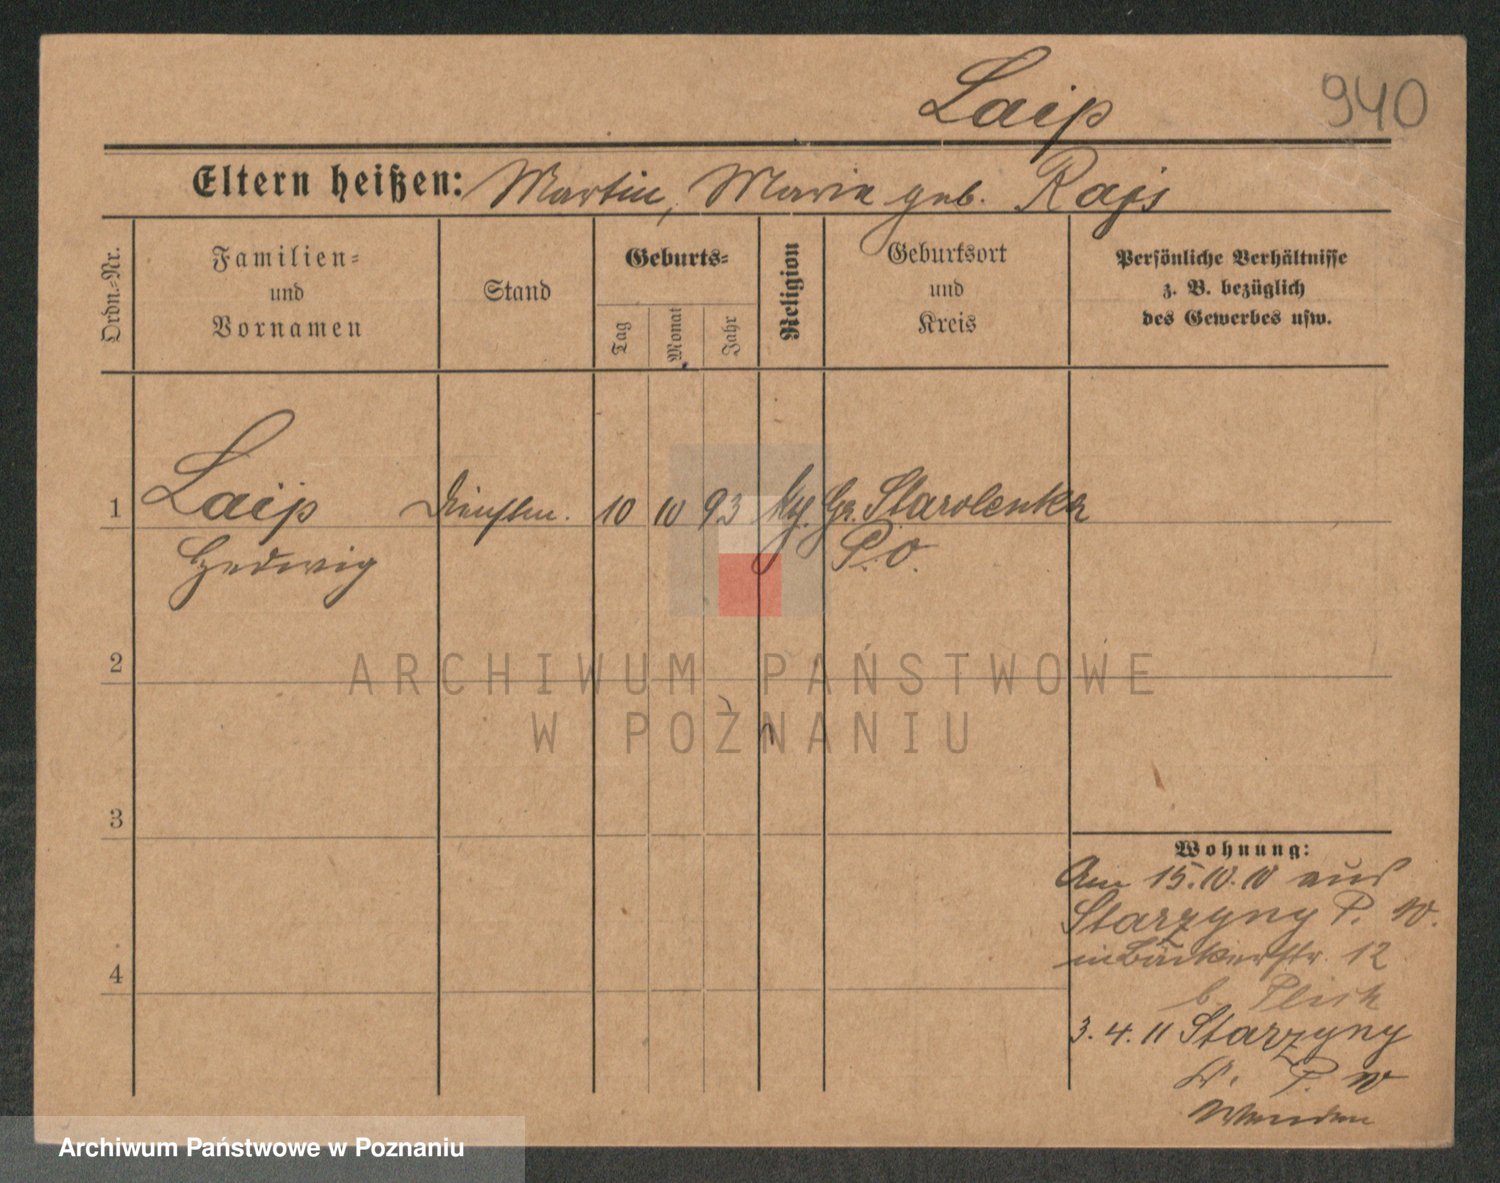 Laip 940
Eltern heißen: Martin, Marie geb. Rajs
Ordn.=Nr.
Familien=
und
Vornamen
Stand
Geburts=
Tag
Monat
Jahr
Religion
Geburtsort
und
Kreis
Persönliche Verhältnisse
z. B. bezüglich
des Gewerbes usw.
1 Laip Dienstm. 10 10 93 Gr. Starolenka
Hedwig P. O.
2
ARCHIWUM PAŃSTWOWE
W POZNANIU
3
Wohnung:
Am 15. 10. 10 aus
Starzyny P. W.
in Bäckerstr. 12
b.
4
3. 4. 11 Starzyny
P. W
Wenden
Archiwum Państwowe w Poznaniu